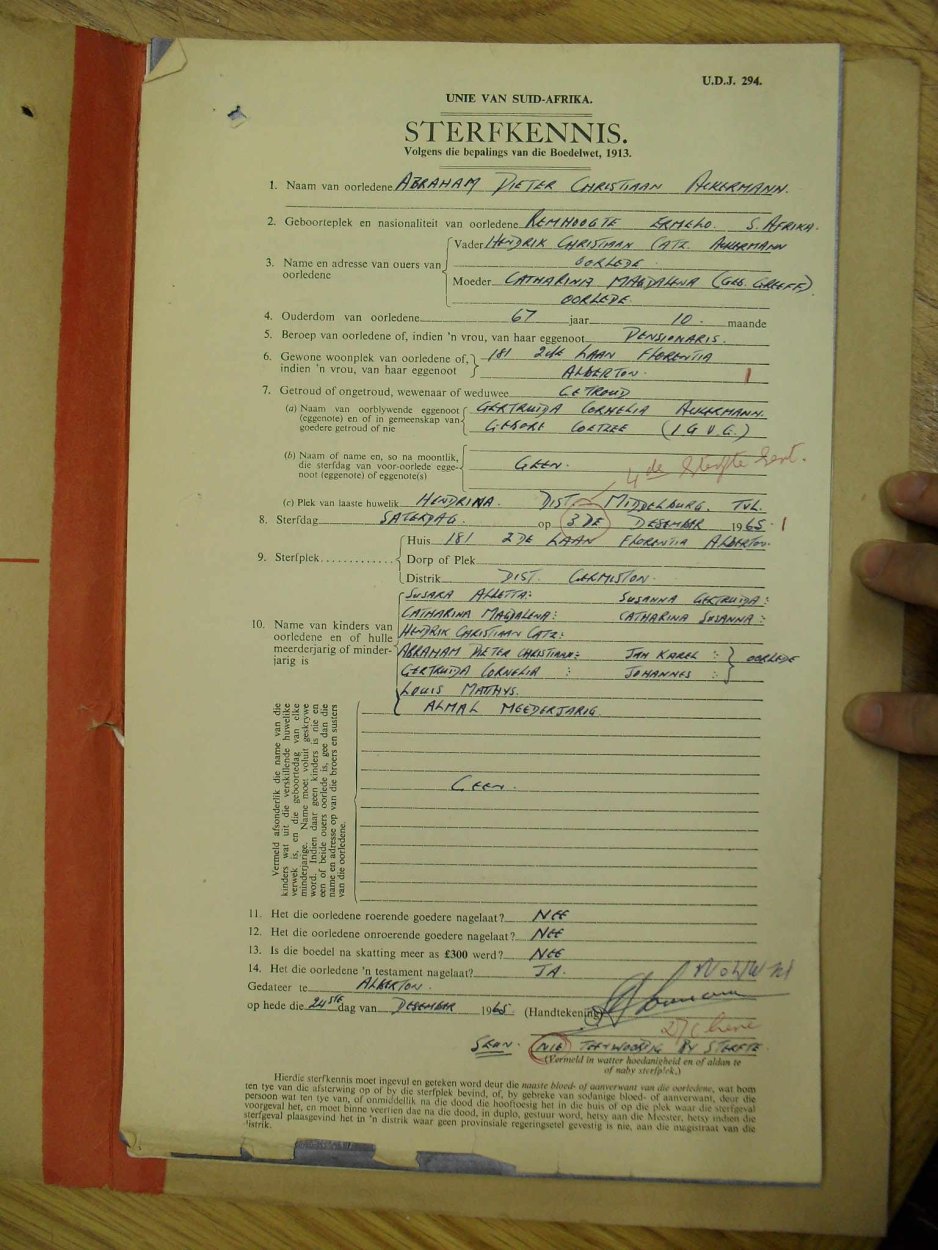 U.D.J. 294.
UNIE VAN SUID-AFRIKA.
STERFKENNIS.
Volgens die bepalings van die Boedelwet, 1913.
1. Naam van oorledene ABRAHAM PIETER CHRISTIAAN ACKERMANN.
2. Geboorteplek en nasionaliteit van oorledene REMHOOGTE ERMELO. S. AFRIKA.
3. Name en adresse van ouers van oorledene
Vader HENDRIK CHRISTIAAN CATZ. ACKERMANN
OORLEDE.
Moeder CATHARINA MAGDALENA (GEB. GREEFF)
OORLEDE.
4. Ouderdom van oorledene 67 jaar 10. maande
5. Beroep van oorledene of, indien 'n vrou, van haar eggenoot PENSIONARIS.
6. Gewone woonplek van oorledene of, 181 2DE LAAN FLORENTIA
indien 'n vrou, van haar eggenoot ALBERTON.
7. Getroud of ongetroud, wewenaar of weduwee GETROUD
(a) Naam van oorblywende eggenoot GERTRUIDA CORNELIA ACKERMANN.
(eggenote) en of in gemeenskap van GEBORE COETZEE (I.G.V.G.)
goedere getroud of nie
(b) Naam of name en, so na moontlik,
die sterfdag van voor-oorlede egge- GEEN.
noot (eggenote) of eggenote(s)
4de Sterfte Sert.
(c) Plek van laaste huwelik HENDRINA. DIST. MIDDELBURG. TVL.
8. Sterfdag SATERDAG. op 3DE DESEMBER 1965.
9. Sterfplek
Huis 181 2DE LAAN FLORENTIA ALBERTON.
Dorp of Plek
Distrik DIST. GERMISTON.
10. Name van kinders van oorledene en of hulle meerderjarig of minderjarig is
SUSARA ALLETTA: SUSANNA GERTRUIDA:
CATHARINA MAGDALENA: CATHARINA SUSANNA:
HENDRIK CHRISTIAAN CATZ:
ABRAHAM PIETER CHRISTIAAN: JAN KAREL: OORLEDE
GERTRUIDA CORNELIA: JOHANNES:
LOUIS MATTHYS.
ALMAL MEEDERJARIG.
Vermeld afsonderlik die name van die
kinders wat uit die verskillende huwelike
verwek is, en die geboortedag van elke
minderjarige. Name moet voluit geskrywe
word. Indien daar geen kinders is nie en
een of beide ouers oorlede is, gee dan die
name en adresse op van die broers en susters
van die oorledene.
GEEN.
11. Het die oorledene roerende goedere nagelaat? NEE
12. Het die oorledene onroerende goedere nagelaat? NEE
13. Is die boedel na skatting meer as £300 werd? NEE
14. Het die oorledene 'n testament nagelaat? JA.
Gedateer te ALBERTON.
op hede die 24STE dag van DESEMBER 1965. (Handtekening)
SEUN. NIE TEENWOORDIG BY STERFTE.
(Vermeld in watter hoedanigheid en of aldan te
of naby sterfplek.)
Hierdie sterfkennis moet ingevul en geteken word deur die naaste bloed- of aanverwant van die oorledene, wat hom
ten tye van die afsterwing op of by die sterfplek bevind, of, by gebreke van sodanige bloed- of aanverwant, deur die
persoon wat ten tye van, of onmiddellik na die dood die hooftoesig het in die huis of op die plek waar die sterfgeval
voorgeval het, en moet binne veertien dae na die dood, in duplo, gestuur word, hetsy aan die Meester, hetsy indien die
sterfgeval plaasgevind het in 'n distrik waar geen provinsiale regeringsetel gevestig is nie, aan die magistraat van die
distrik.